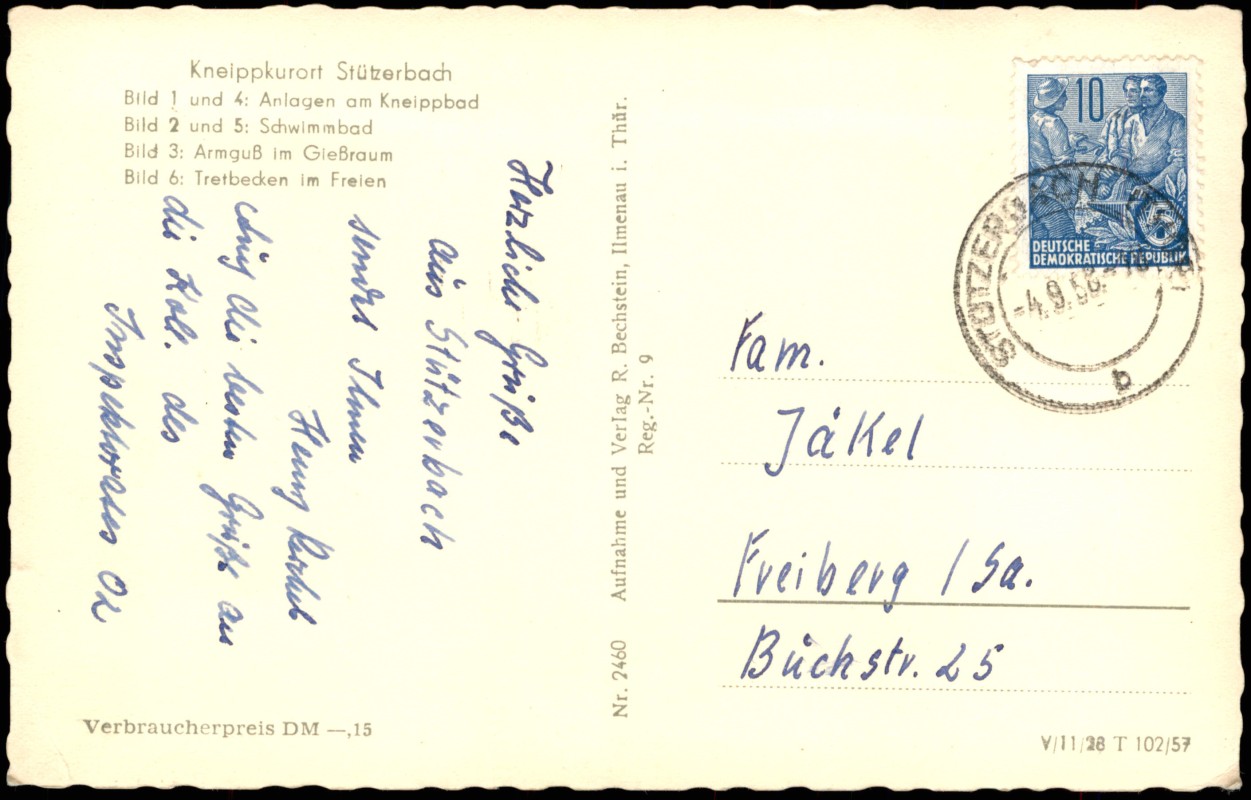 Kneippkurort Stützerbach
Bild 1 und 4: Anlagen am Kneippbad
Bild 2 und 5: Schwimmbad
Bild 3: Armguß im Gießraum
Bild 6: Tretbecken im Freien
Herzliche Grüße
aus Stützerbach
sendet Ihnen
Henny
die besten Grüße an
die Koll. des
Inspektorates
Verbraucherpreis DM —,15
Nr. 2460 Aufnahme und Verlag R. Bechstein, Ilmenau i. Thür.
Reg.-Nr. 9
10
DEUTSCHE
DEMOKRATISCHE REPUBLIK
STÜTZERBACH
-4.9.58.-
b
Fam.
Jäkel
Freiberg / Sa.
Buchstr. 25
V/11/28 T 102/57